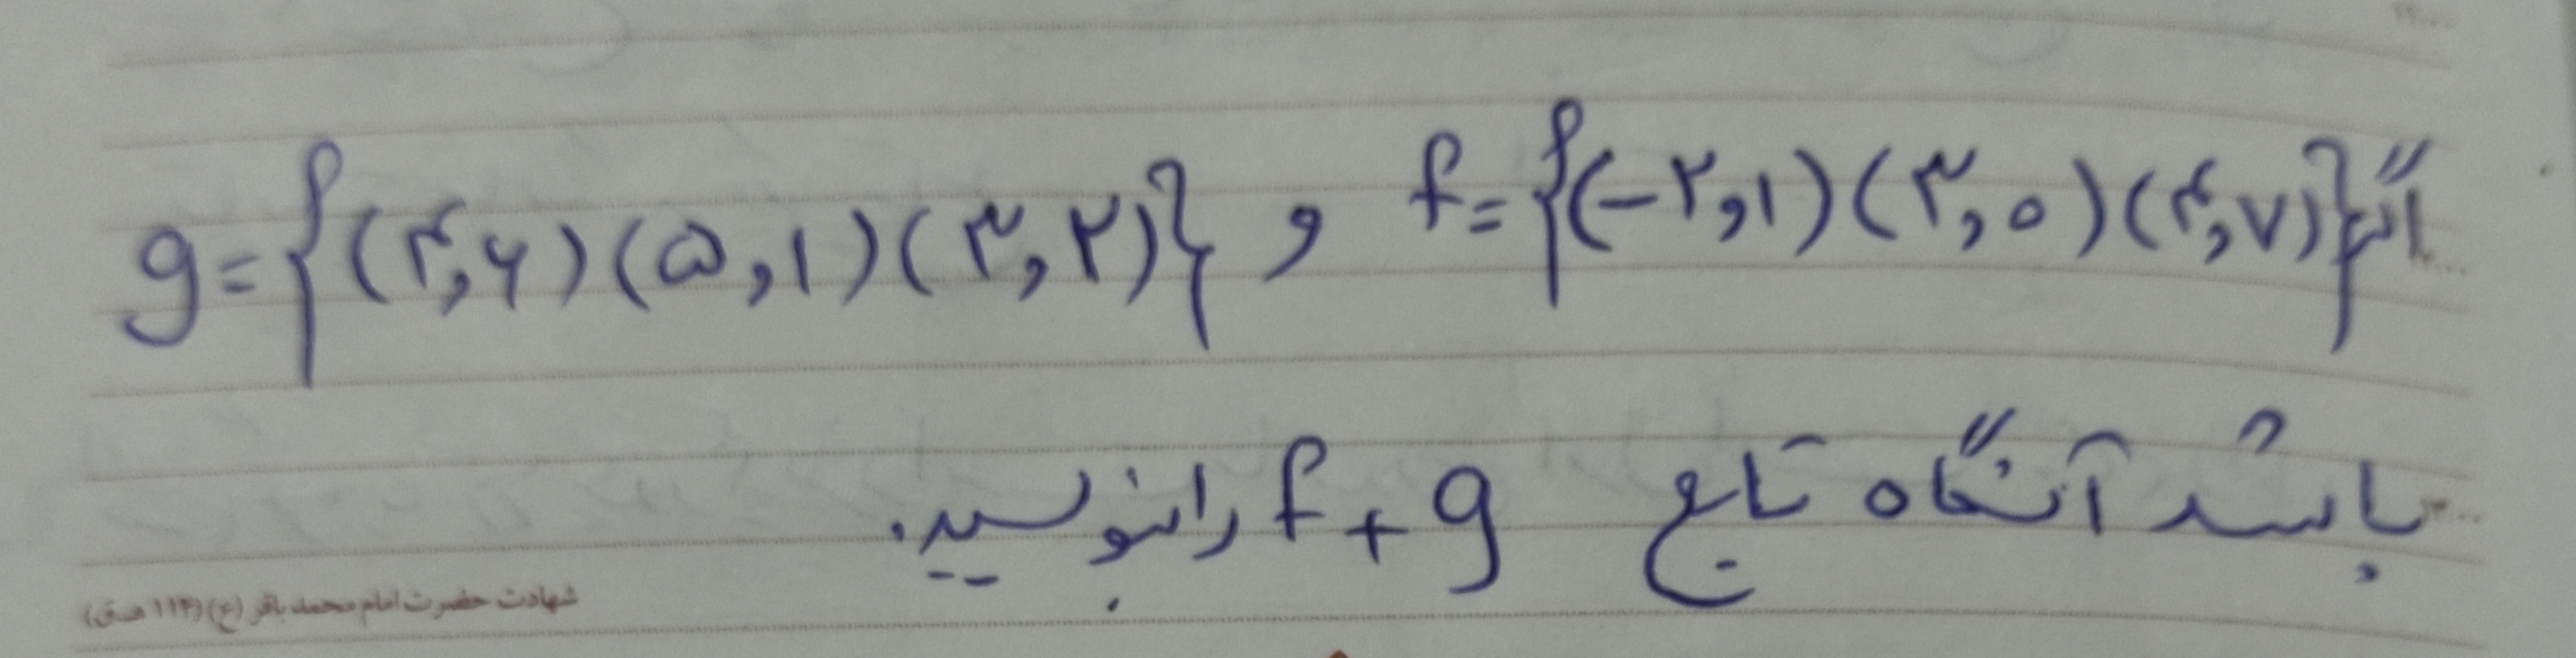 اگر f={(-۲,۱)(۳,۰)(۴,۷)} و g={(۴,۶)(۵,۱)(۳,۲)}
باشد آنگاه تابع f+g را بنویسید.
شهادت حضرت امام محمد باقر (ع) (۱۱۴ هـ.ق)